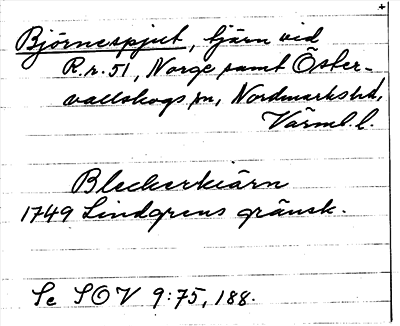 Björnespjut, tjärn vid
R.r. 51, Norge samt Öster-
vallskogs sn, Nordmarks hd,
Värml. l.
Bleckerkiärn
1749 Lindgrens gränsk.
Se SOV 9:75, 188.